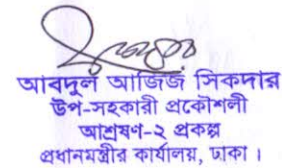 আবদুল আজিজ সিকদার
উপ-সহকারী প্রকৌশলী
আশ্রয়ণ-২ প্রকল্প
প্রধানমন্ত্রীর কার্যালয়, ঢাকা।